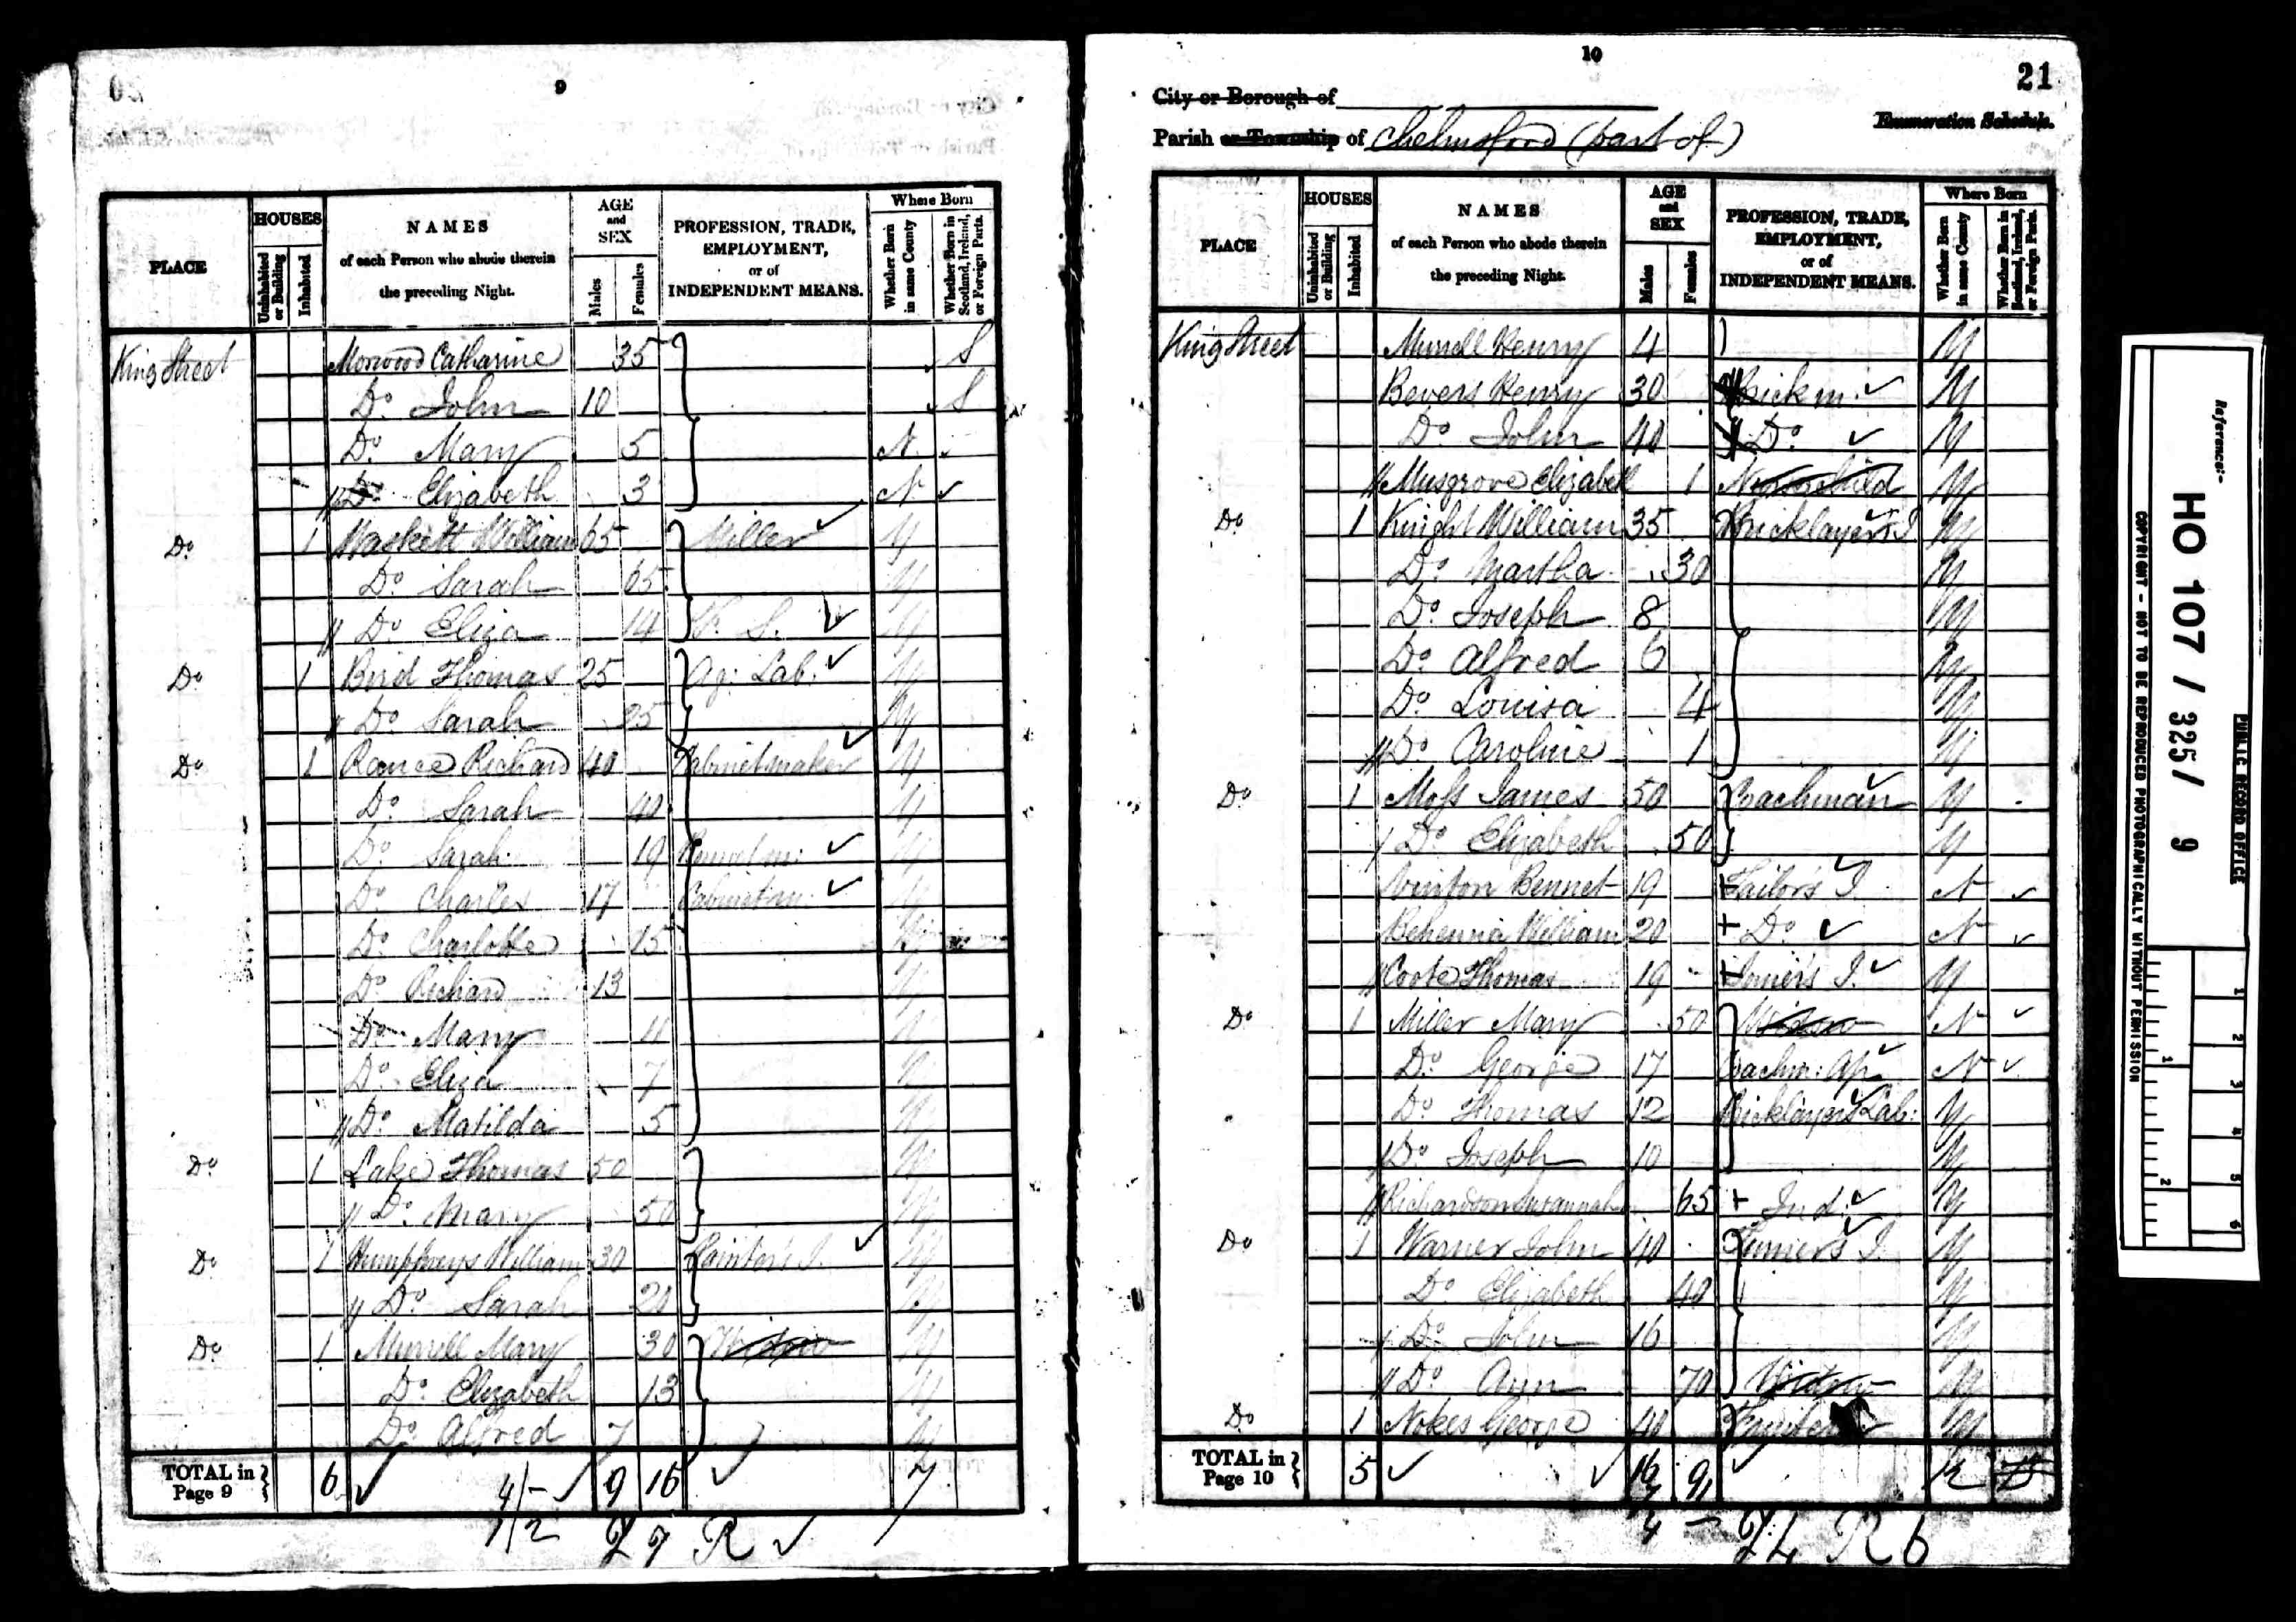 9
PLACE
HOUSES
Uninhabited or Building
Inhabited
NAMES
of each Person who abode therein
the preceding Night.
AGE
and
SEX
Males
Females
PROFESSION, TRADE,
EMPLOYMENT,
or of
INDEPENDENT MEANS.
Where Born
Whether Born in same County
Whether Born in Scotland, Ireland, or Foreign Parts.
King Street Morwood Catharine 35 S
Do. John 10 S
Do. Mary 5 N
Do. Elizabeth 3 N
Do. 1 Haskett William 65 Miller Y
Do. Sarah 65 Y
Do. Eliza 14 F. S. Y
Do. 1 Bird Thomas 25 Ag: Lab: Y
Do. Sarah 25 Y
Do. 1 Rance Richard 40 Cabinetmaker Y
Do. Sarah 40 Y
Do. Sarah 19 Y
Do. Charles 17 Cabinet m: Y
Do. Charlotte 15 Y
Do. Richard 13 Y
Do. Mary 11 Y
Do. Eliza 7 Y
Do. Matilda 5 Y
Do. 1 Lake Thomas 50 Y
Do. Mary 50 Y
Do. 1 Humphreys William 30 Painter's J. Y
Do. Sarah 20 Y
Do. 1 Murrell Mary 30 Widow Y
Do. Elizabeth 13 Y
Do. Alfred 7 Y
TOTAL in Page 9 6 4/- 9 16 7
1/2 27 R
10
21
City or Borough of
Parish or Township of Chelmsford (part of)
Enumeration Schedule.
PLACE
HOUSES
Uninhabited or Building
Inhabited
NAMES
of each Person who abode therein
the preceding Night.
AGE
and
SEX
Males
Females
PROFESSION, TRADE,
EMPLOYMENT,
or of
INDEPENDENT MEANS.
Where Born
Whether Born in same County
Whether Born in Scotland, Ireland, or Foreign Parts.
King Street Murrell Henry 4 Y
Bevers Henry 30 Brickm. Y
Do. John 40 Do. Y
Musgrove Elizabeth 1 Y
Do. 1 Knight William 35 Bricklayer's J Y
Do. Martha 30 Y
Do. Joseph 8 Y
Do. Alfred 6 Y
Do. Louisa 4 Y
Do. Caroline 1 Y
Do. 1 Moss James 50 Coachman Y
Do. Elizabeth 50 Y
Vinton Bennet 19 Tailor's J. N
Behenna William 20 Do. N
Coote Thomas 19 Y
Do. 1 Miller Mary 50 Widow N
Do. George 17 Coachm: Ap N
Do. Thomas 12 Bricklayer's Lab: Y
Do. Joseph 10 Y
Richardson Susannah 65 Ind: Y
Do. 1 Warner John 40 Y
Do. Elizabeth 40 Y
Do. John 16 Y
Do. Ann 70 Widow Y
Do. 1 Nokes George 40 Y
TOTAL in Page 10 5 16 9
24 R 6
Reference:-
HO 107 / 325 / 9
PUBLIC RECORD OFFICE
COPYRIGHT - NOT TO BE REPRODUCED PHOTOGRAPHICALLY WITHOUT PERMISSION
1 2
1 2 3 4 5 6